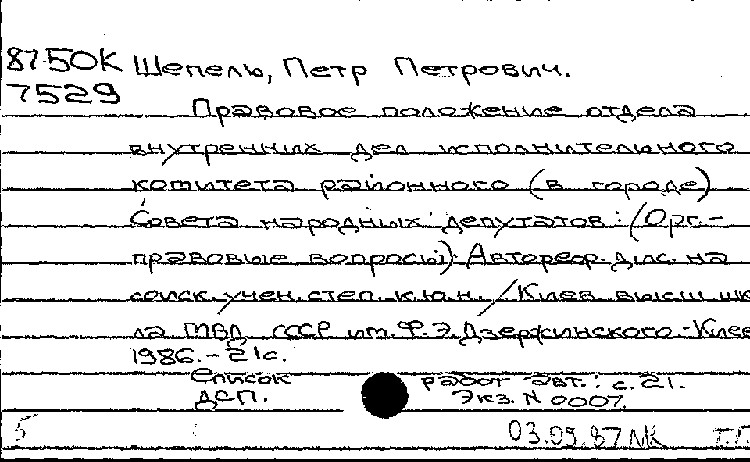 87-50К Шепель, Петр Петрович.
7529
Правовое положение отдела
внутренних дел исполнительного
комитета районного (в городе)
Совета народных депутатов: (Орг.-
правовые вопросы): Автореф. дис. на
соиск. учен. степ. к.ю.н. / Киев. высш. шк
ла МВД СССР им. Ф.Э.Дзержинского.-Киев
1986.- 21с.
Список работ авт.: с.21.
ДСП. Экз. N 0007.
5 03.09.87 МК Т.Г.